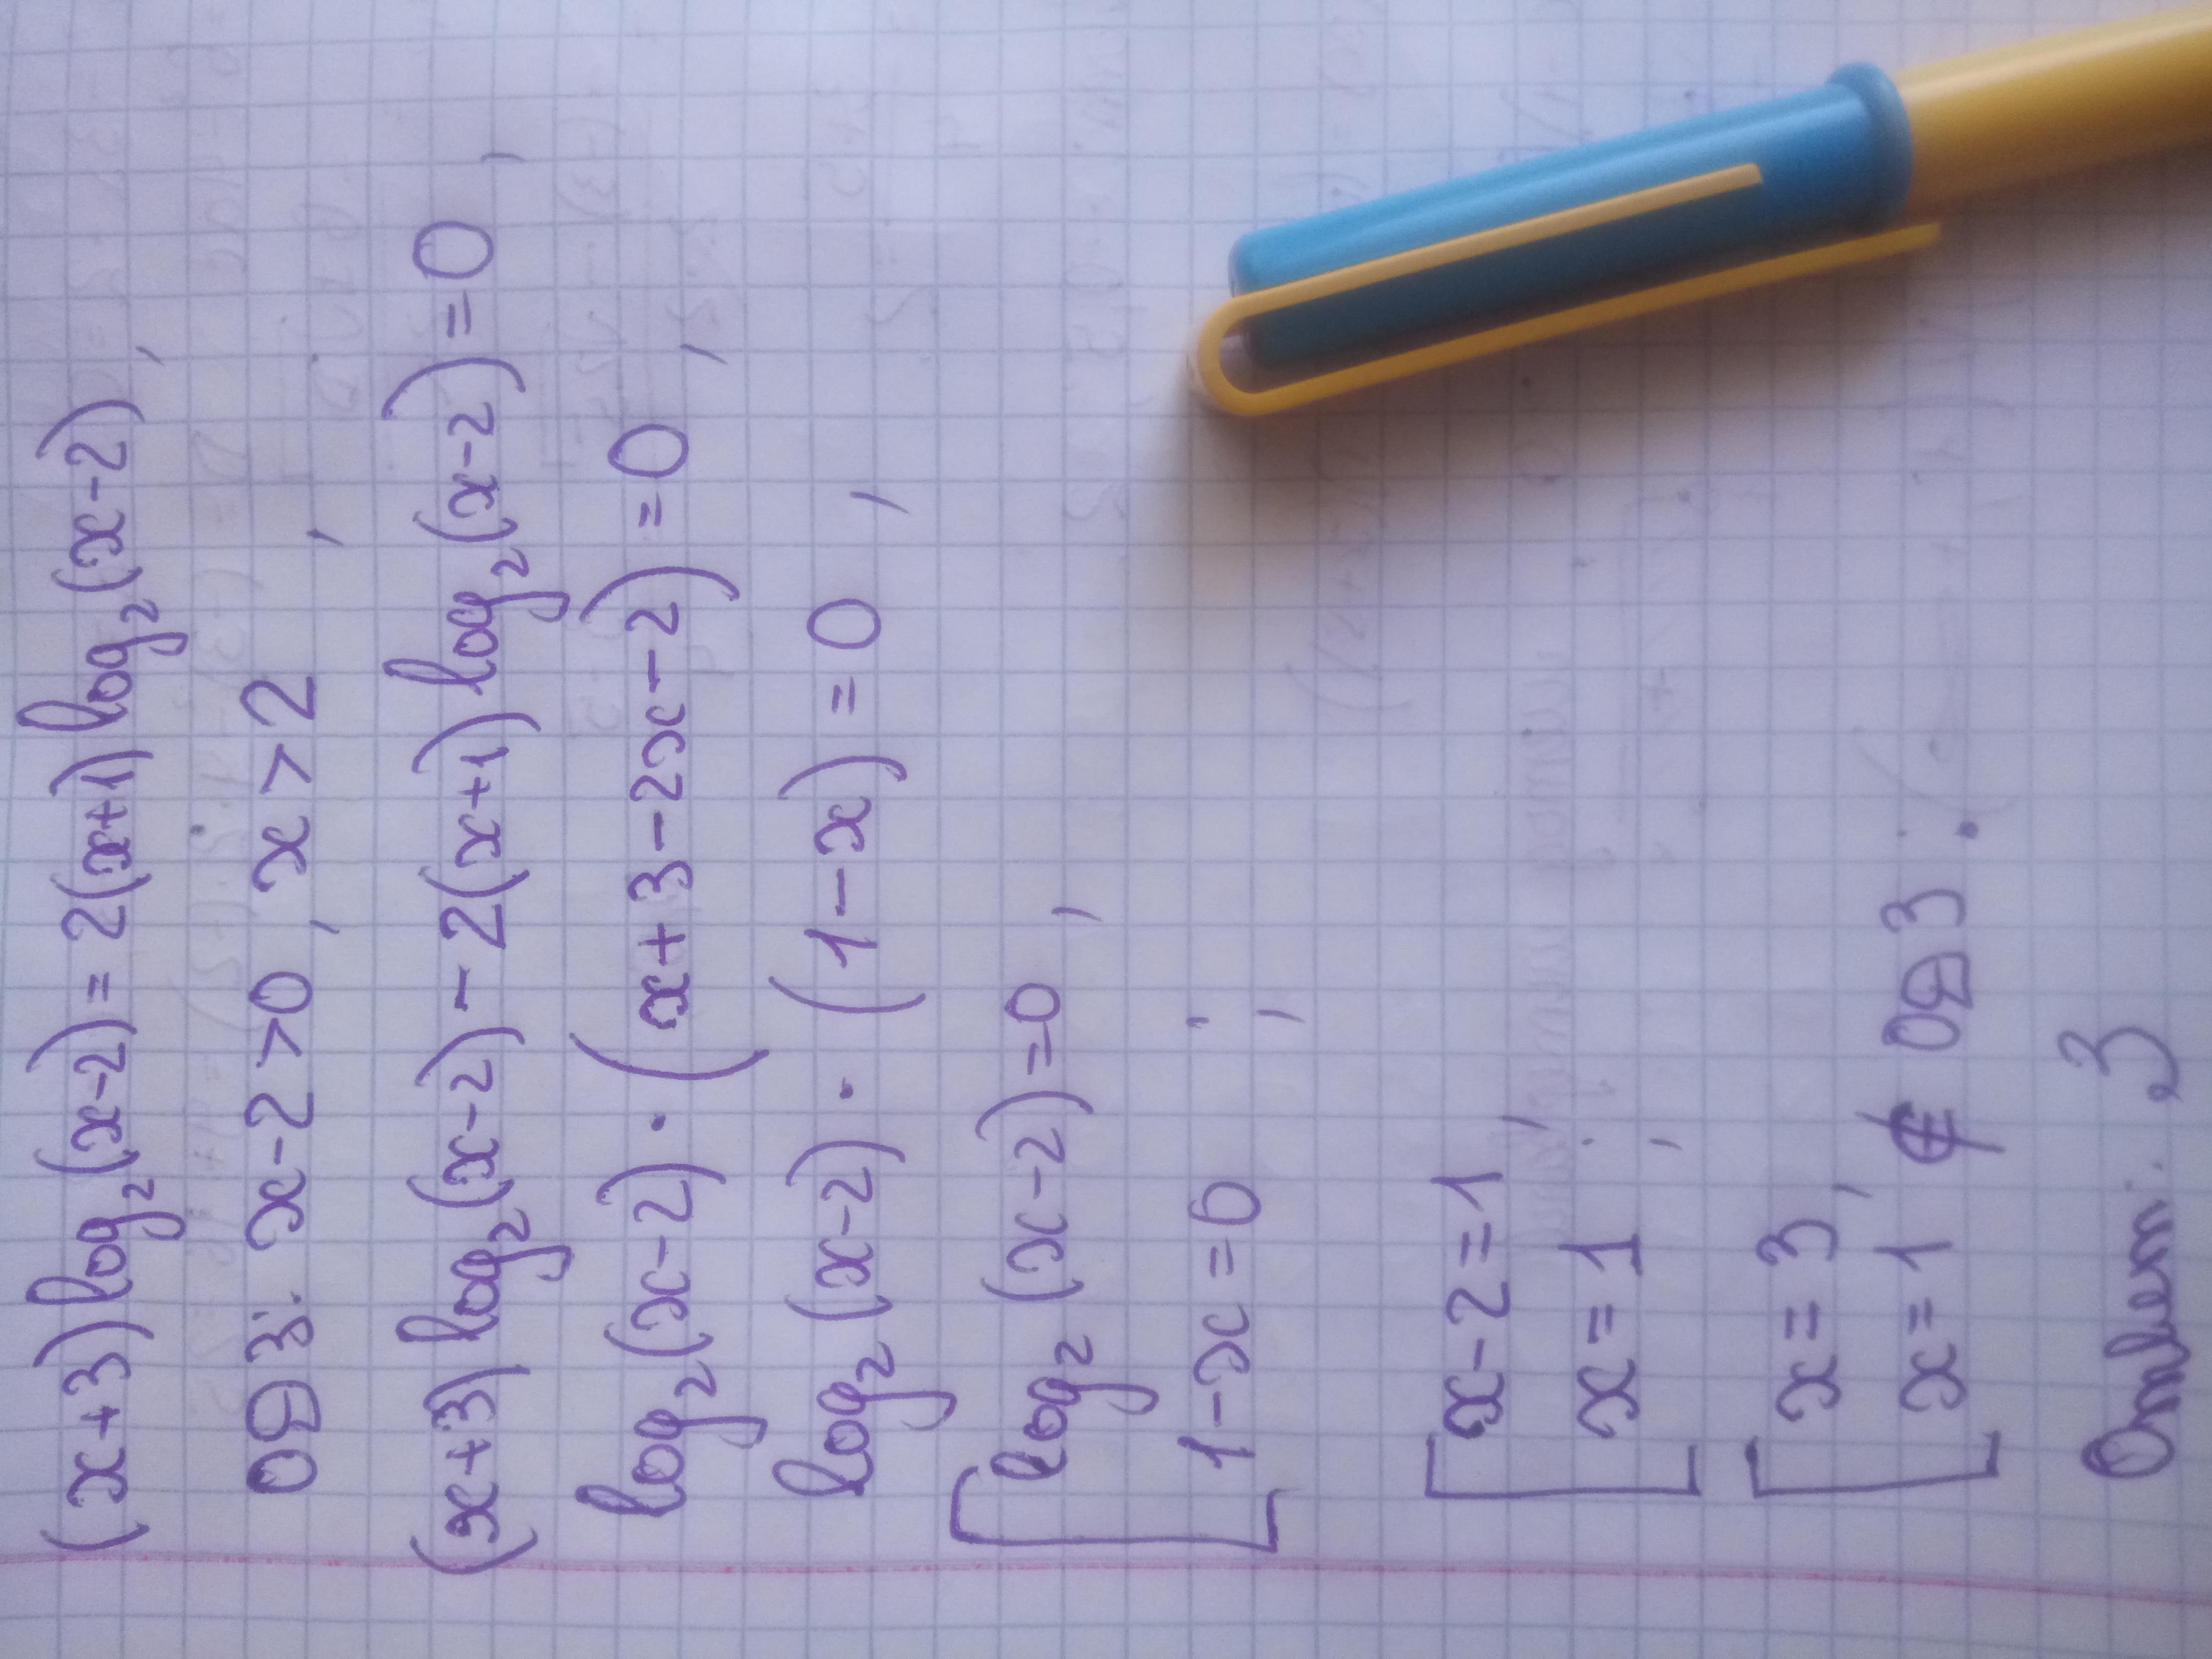 (x+3) log₂(x-2) = 2(x+1) log₂(x-2),
ОДЗ: x-2>0, x>2,
(x+3) log₂(x-2) - 2(x+1) log₂(x-2) = 0,
log₂(x-2) · (x+3-2x-2) = 0,
log₂(x-2) · (1-x) = 0,
[ log₂(x-2)=0,
1-x=0;
[ x-2=1,
x=1;
[ x=3,
x=1 ∉ ОДЗ.
Ответ: 3